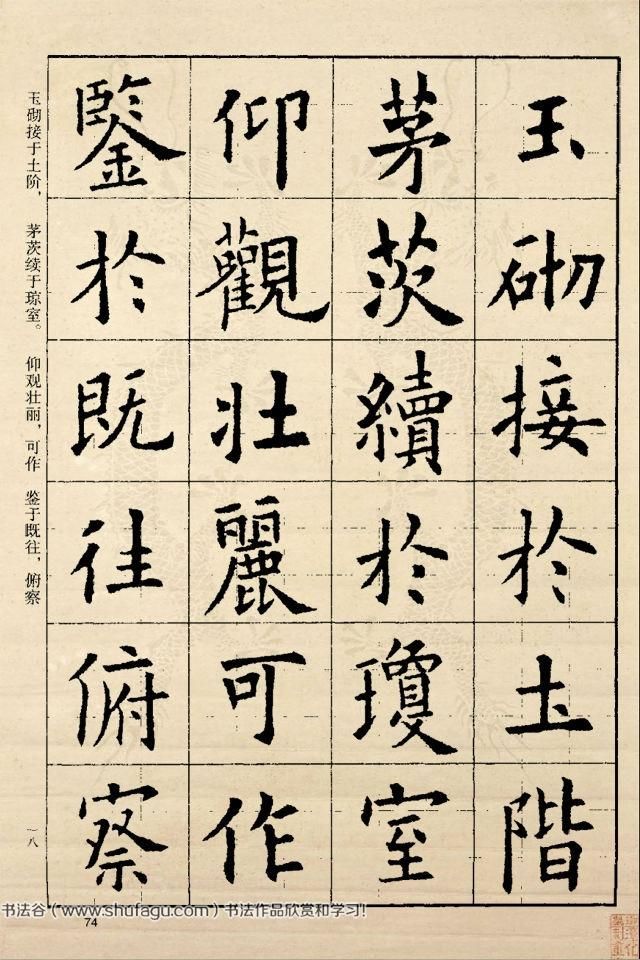 玉砌接於土階
茅茨續於瓊室
仰觀壯麗可作
鑒於既往俯察
玉砌接于土阶，茅茨续于琼室。仰观壮丽，可作鉴于既往，俯察
一八
书法谷（www.shufagu.com）书法作品欣赏和学习！
74